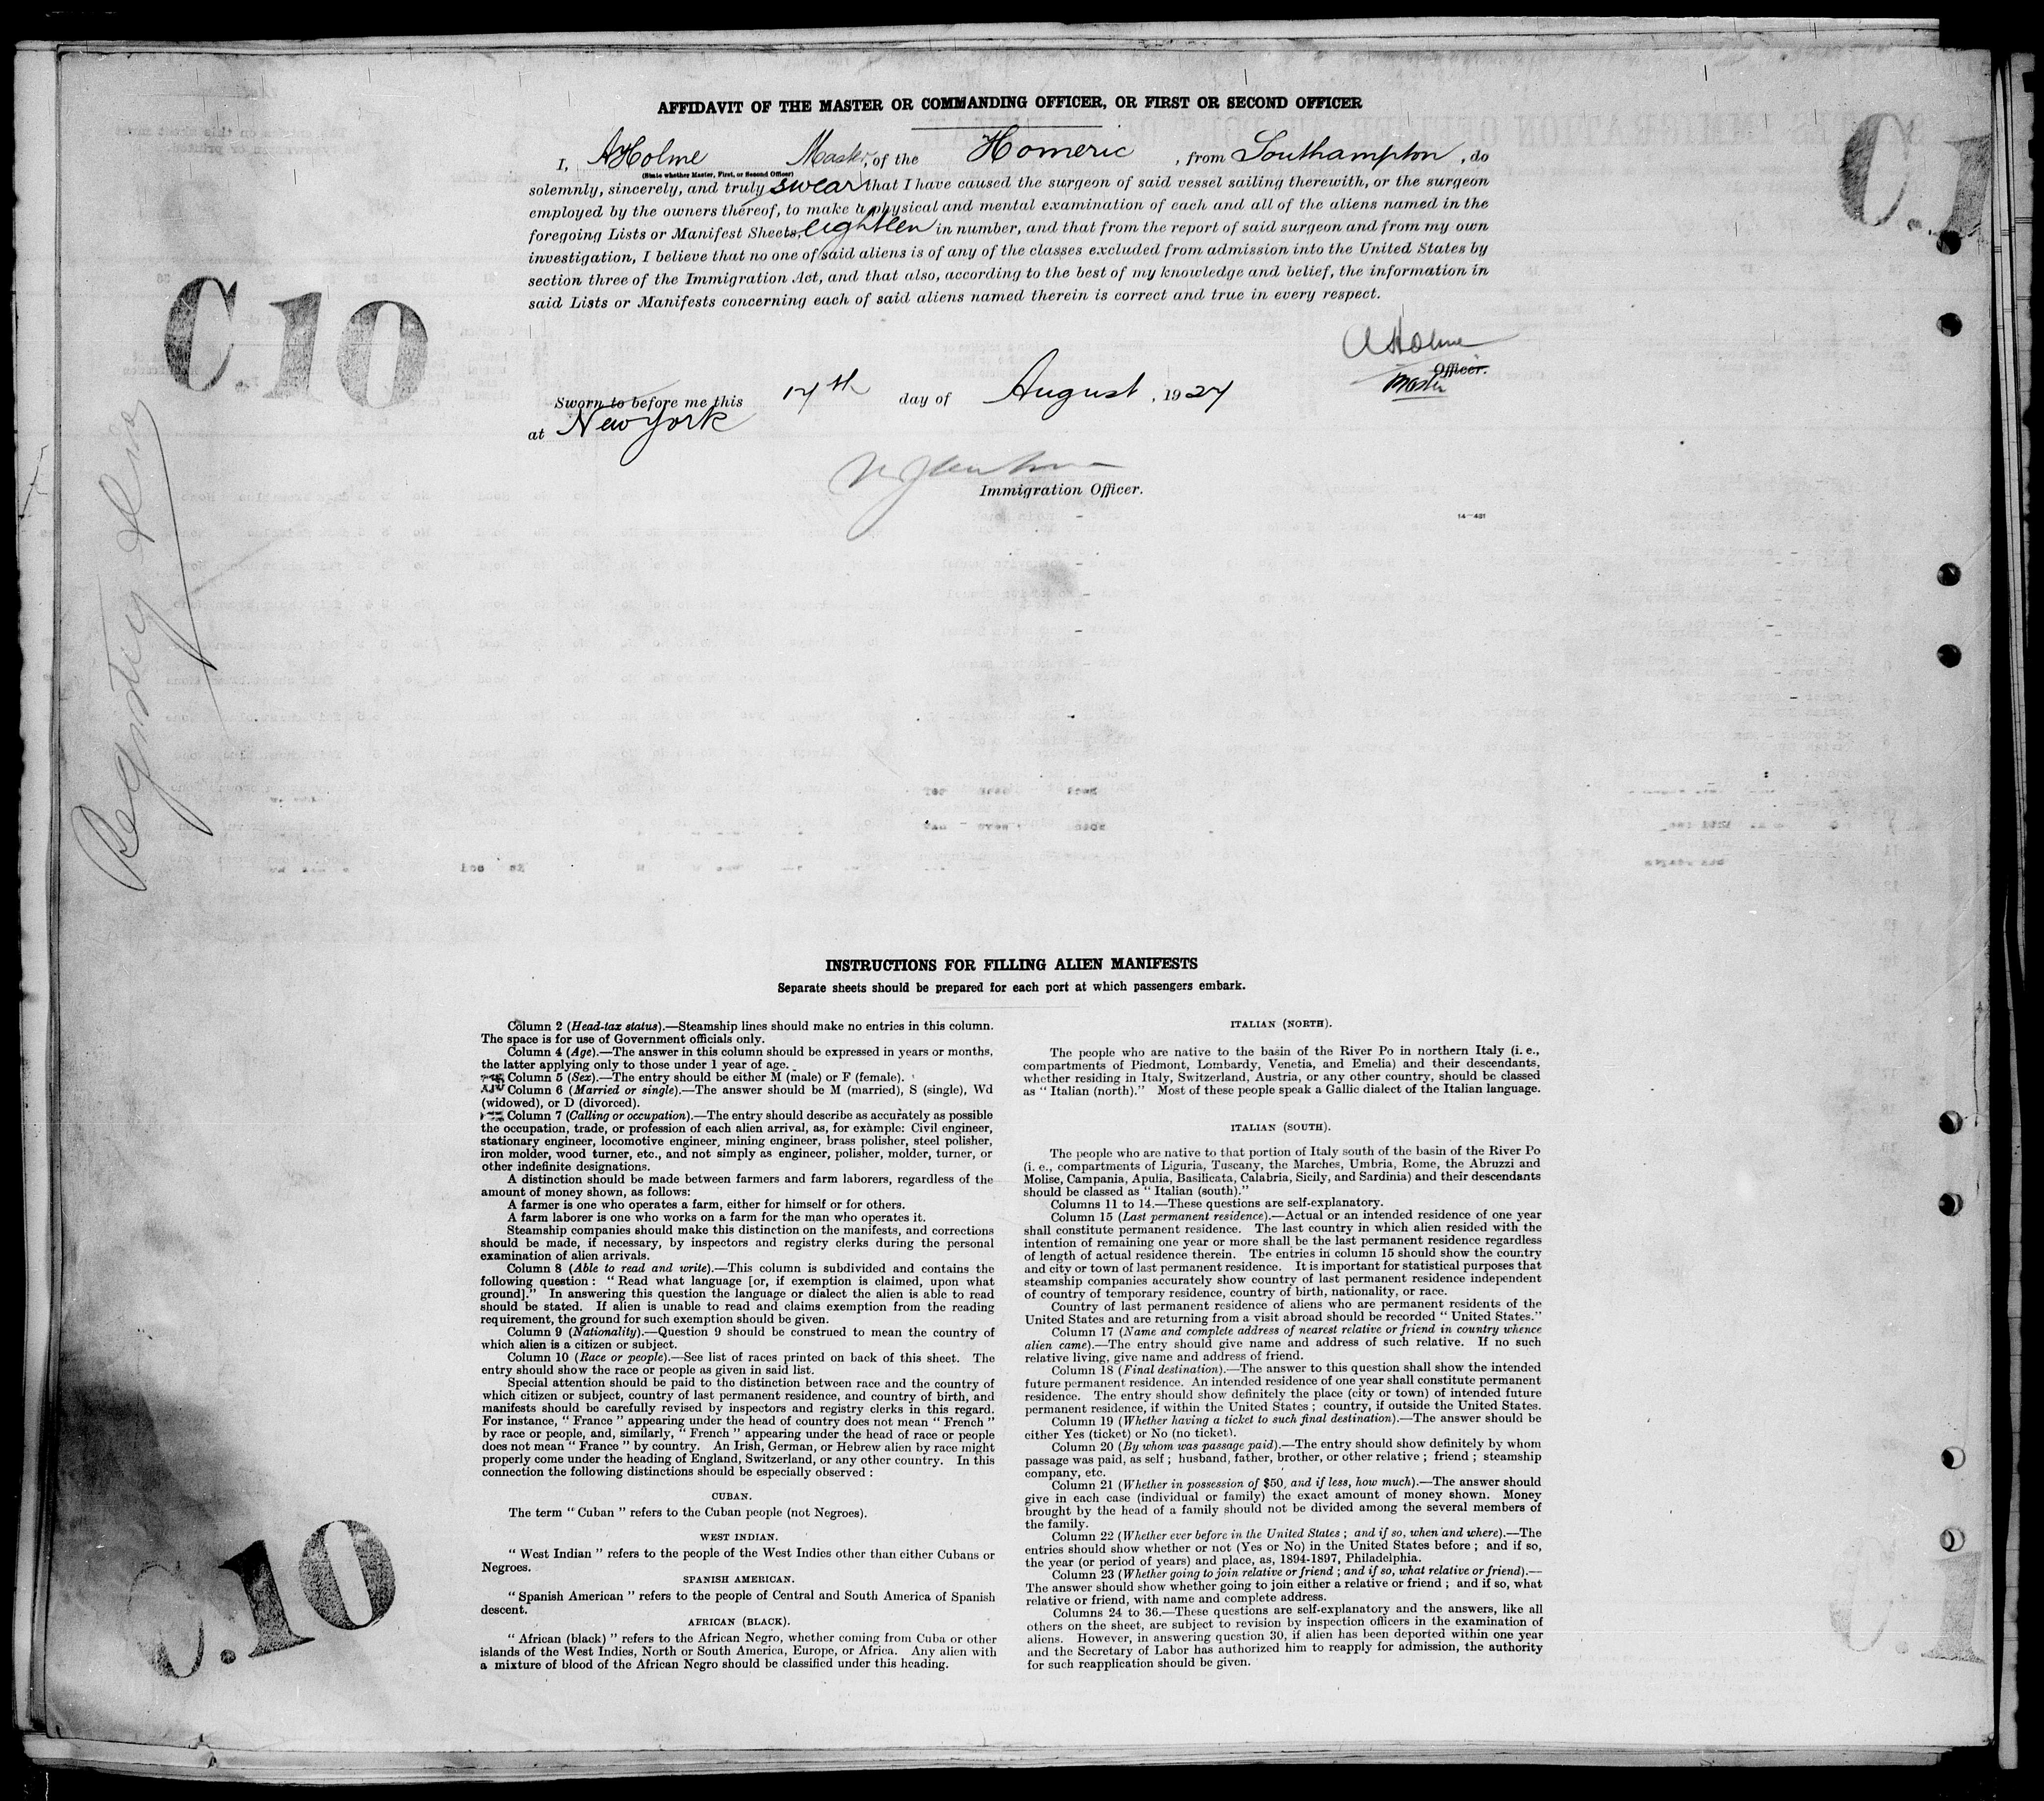 AFFIDAVIT OF THE MASTER OR COMMANDING OFFICER, OR FIRST OR SECOND OFFICER
I, AHolme Master, of the Homeric, from Southampton, do
(State whether Master, First, or Second Officer)
solemnly, sincerely, and truly swear that I have caused the surgeon of said vessel sailing therewith, or the surgeon
employed by the owners thereof, to make a physical and mental examination of each and all of the aliens named in the
foregoing Lists or Manifest Sheets, eighteen in number, and that from the report of said surgeon and from my own
investigation, I believe that no one of said aliens is of any of the classes excluded from admission into the United States by
section three of the Immigration Act, and that also, according to the best of my knowledge and belief, the information in
said Lists or Manifests concerning each of said aliens named therein is correct and true in every respect.
C.10
AHolme
Officer.
Master
Sworn to before me this day of August, 1927
at New York
Immigration Officer.
14—481
Registry
INSTRUCTIONS FOR FILLING ALIEN MANIFESTS
Separate sheets should be prepared for each port at which passengers embark.
Column 2 (Head-tax status).—Steamship lines should make no entries in this column.
The space is for use of Government officials only.
Column 4 (Age).—The answer in this column should be expressed in years or months,
the latter applying only to those under 1 year of age.
Column 5 (Sex).—The entry should be either M (male) or F (female).
Column 6 (Married or single).—The answer should be M (married), S (single), Wd
(widowed), or D (divorced).
Column 7 (Calling or occupation).—The entry should describe as accurately as possible
the occupation, trade, or profession of each alien arrival, as, for example: Civil engineer,
stationary engineer, locomotive engineer, mining engineer, brass polisher, steel polisher,
iron molder, wood turner, etc., and not simply as engineer, polisher, molder, turner, or
other indefinite designations.
A distinction should be made between farmers and farm laborers, regardless of the
amount of money shown, as follows:
A farmer is one who operates a farm, either for himself or for others.
A farm laborer is one who works on a farm for the man who operates it.
Steamship companies should make this distinction on the manifests, and corrections
should be made, if necessary, by inspectors and registry clerks during the personal
examination of alien arrivals.
Column 8 (Able to read and write).—This column is subdivided and contains the
following question: "Read what language [or, if exemption is claimed, upon what
ground]." In answering this question the language or dialect the alien is able to read
should be stated. If alien is unable to read and claims exemption from the reading
requirement, the ground for such exemption should be given.
Column 9 (Nationality).—Question 9 should be construed to mean the country of
which alien is a citizen or subject.
Column 10 (Race or people).—See list of races printed on back of this sheet. The
entry should show the race or people as given in said list.
Special attention should be paid to the distinction between race and the country of
which citizen or subject, country of last permanent residence, and country of birth, and
manifests should be carefully revised by inspectors and registry clerks in this regard.
For instance, "France" appearing under the head of country does not mean "French"
by race or people, and, similarly, "French" appearing under the head of race or people
does not mean "France" by country. An Irish, German, or Hebrew alien by race might
properly come under the heading of England, Switzerland, or any other country. In this
connection the following distinctions should be especially observed:
CUBAN.
The term "Cuban" refers to the Cuban people (not Negroes).
WEST INDIAN.
"West Indian" refers to the people of the West Indies other than either Cubans or
Negroes.
SPANISH AMERICAN.
"Spanish American" refers to the people of Central and South America of Spanish
descent.
AFRICAN (BLACK).
"African (black)" refers to the African Negro, whether coming from Cuba or other
islands of the West Indies, North or South America, Europe, or Africa. Any alien with
a mixture of blood of the African Negro should be classified under this heading.
ITALIAN (NORTH).
The people who are native to the basin of the River Po in northern Italy (i. e.,
compartments of Piedmont, Lombardy, Venetia, and Emelia) and their descendants,
whether residing in Italy, Switzerland, Austria, or any other country, should be classed
as "Italian (north)." Most of these people speak a Gallic dialect of the Italian language.
ITALIAN (SOUTH).
The people who are native to that portion of Italy south of the basin of the River Po
(i. e., compartments of Liguria, Tuscany, the Marches, Umbria, Rome, the Abruzzi and
Molise, Campania, Apulia, Basilicata, Calabria, Sicily, and Sardinia) and their descendants
should be classed as "Italian (south)."
Columns 11 to 14.—These questions are self-explanatory.
Column 15 (Last permanent residence).—Actual or an intended residence of one year
shall constitute permanent residence. The last country in which alien resided with the
intention of remaining one year or more shall be the last permanent residence regardless
of length of actual residence therein. The entries in column 15 should show the country
and city or town of last permanent residence. It is important for statistical purposes that
steamship companies accurately show country of last permanent residence independent
of country of temporary residence, country of birth, nationality, or race.
Country of last permanent residence of aliens who are permanent residents of the
United States and are returning from a visit abroad should be recorded "United States."
Column 17 (Name and complete address of nearest relative or friend in country whence
alien came).—The entry should give name and address of such relative. If no such
relative living, give name and address of friend.
Column 18 (Final destination).—The answer to this question shall show the intended
future permanent residence. An intended residence of one year shall constitute permanent
residence. The entry should show definitely the place (city or town) of intended future
permanent residence, if within the United States; country, if outside the United States.
Column 19 (Whether having a ticket to such final destination).—The answer should be
either Yes (ticket) or No (no ticket).
Column 20 (By whom was passage paid).—The entry should show definitely by whom
passage was paid, as self; husband, father, brother, or other relative; friend; steamship
company, etc.
Column 21 (Whether in possession of $50, and if less, how much).—The answer should
give in each case (individual or family) the exact amount of money shown. Money
brought by the head of a family should not be divided among the several members of
the family.
Column 22 (Whether ever before in the United States; and if so, when and where).—The
entries should show whether or not (Yes or No) in the United States before; and if so,
the year (or period of years) and place, as, 1894-1897, Philadelphia.
Column 23 (Whether going to join relative or friend; and if so, what relative or friend).—
The answer should show whether going to join either a relative or friend; and if so, what
relative or friend, with name and complete address.
Columns 24 to 36.—These questions are self-explanatory and the answers, like all
others on the sheet, are subject to revision by inspection officers in the examination of
aliens. However, in answering question 30, if alien has been deported within one year
and the Secretary of Labor has authorized him to reapply for admission, the authority
for such reapplication should be given.
C.10